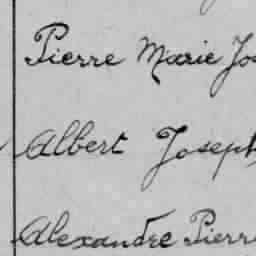 Pierre Marie Jos
Albert Joseph
Alexandre Pierre